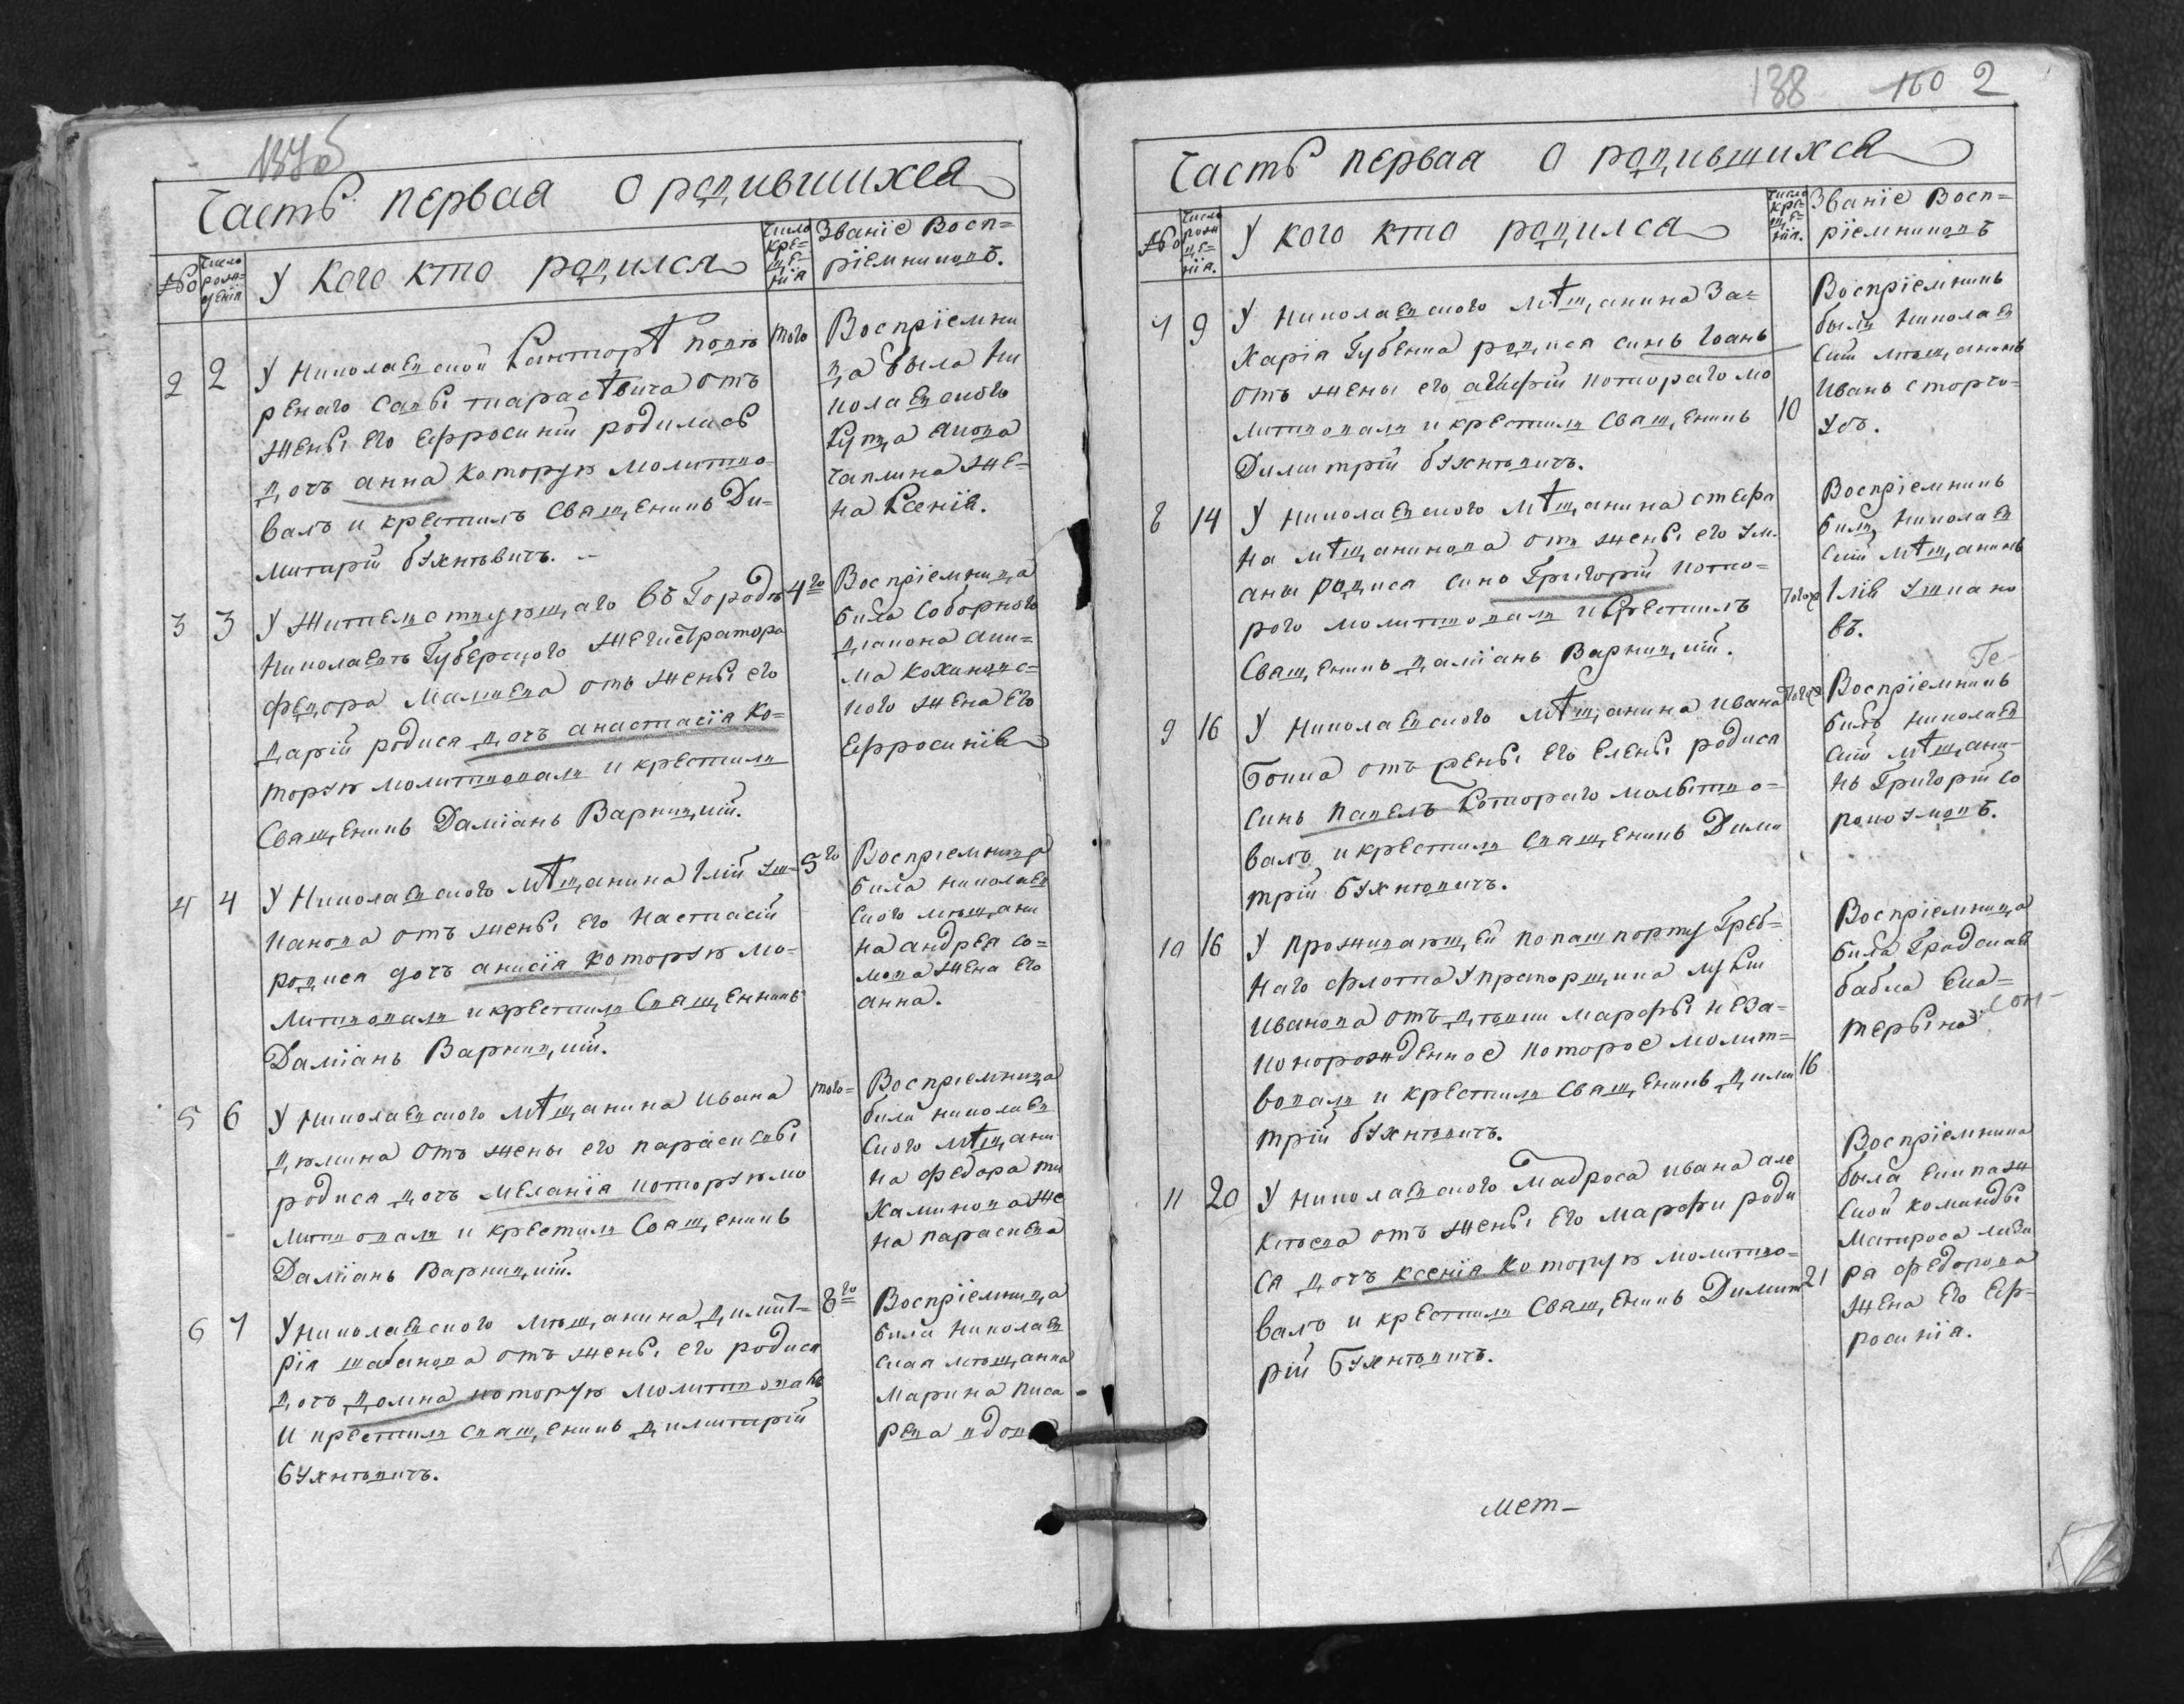 137об
Часть первая О родившихся
№
Число рож-
денія
У кого кто родился
Число
кре-
ще-
нія
Званіе Восп-
ріемниковъ.
2 2 У Николаевской
ренаго Савы тарасѣвича отъ
жены его Ефросиніи родилась
дочь анна которую молитво-
валъ и крестилъ Священикъ Ди-
митрій бухнѣвичъ.
того
Воспріемни
ца была Ни
колаевского
Купца
чаплина же-
на Ксенія.
3 3 У Жителствующаго въ Городѣ
Николаевѣ Губерского Жегистратора
Федора отъ жены его
Дарій родися дочь анастасія ко-
торую молитвовалъ и крестилъ
Священикъ Даміанъ Варницкій.
4го
Воспріемница
била Соборного
диакона аки-
ма
кого жена его
Ефросинія
4 4 У Николаевского мѣщанина Іліи Уш-
канова отъ жены его Настасіи
родися дочь анисія которую мо-
литвовалъ и крестилъ Священникъ
Даміанъ Варницкій.
5го
Воспріемница
била николаев
ского мѣщани
на андрея со-
мова жена его
анна.
5 6 У Николаевского мѣщанина Ивана
дюмина отъ жены его параскевы
родися дочь меланія которую мо
литвовалъ и крестилъ Священикъ
Даміанъ Варницкій.
того-
Воспріемница
била николаев
ского мѣщани
на федора ми
халинова же
на параскева
6 7 У Николаевского мѣщанина димит-
рія шабанова отъ жены его родися
дочь домна которую молитвовавъ
и крестилъ священикъ димитрій
бухнѣвичъ.
8го
Воспріемница
била Николаев
ская мѣщанка
Марина писа
рева вдова
138 160 2
Часть первая О родившихся
№
Число
рож
де-
нія.
У кого кто родился
Число
кре-
ще-
нія.
Званіе Восп-
ріемниковъ
7 9 У Николаевского мѣщанина За-
харія Губенка родися синъ Іоанъ
отъ жены его котораго мо
литвовалъ и крестилъ Священикъ
Димитрій бухнѣвичъ.
10
Воспріемникъ
былъ николаев
скій мѣщанинъ
Иванъ сторго-
8 14 У николаевского мѣщанина стефа
на мѣщанинова отъ жены его ул-
яни родися сино Григорій кото-
рого молитвовалъ и крестилъ
Священикъ даміанъ Варницкій.
тогож
Воспріемникъ
билъ николаев
скій мѣщанинъ
Ілія ушкано
въ.
9 16 У николаевского мѣщанина ивана
отъ жены его Елены родися
синъ Павелъ Котораго молитво-
валъ и крестилъ Священикъ Дими
трій бухнѣвичъ.
тогож
Ге-
Воспріемникъ
билъ николаев
скій мѣщани-
нъ Григорій со
10 16 У проживающей по пашпорту Греб-
наго флота Упрапорщика лукии
иванова отъ дѣвки марфы неза-
конорожденное которое молит-
вовалъ и крестилъ Священикъ дими
трій бухнѣвичъ.
16
Воспріемница
била Градская
бабка Ека-
терына
11 20 У николаевского Мадроса ивана але
ксѣева отъ жены его марфи роди
ся дочь ксенія которую молитво-
валъ и крестилъ Священикъ Димит
рій Бухнѣвичъ.
21
Воспріемница
была екипаж
ской команды
Матроса лаза
ря федорова
жена его Еф-
росинія.
мет-